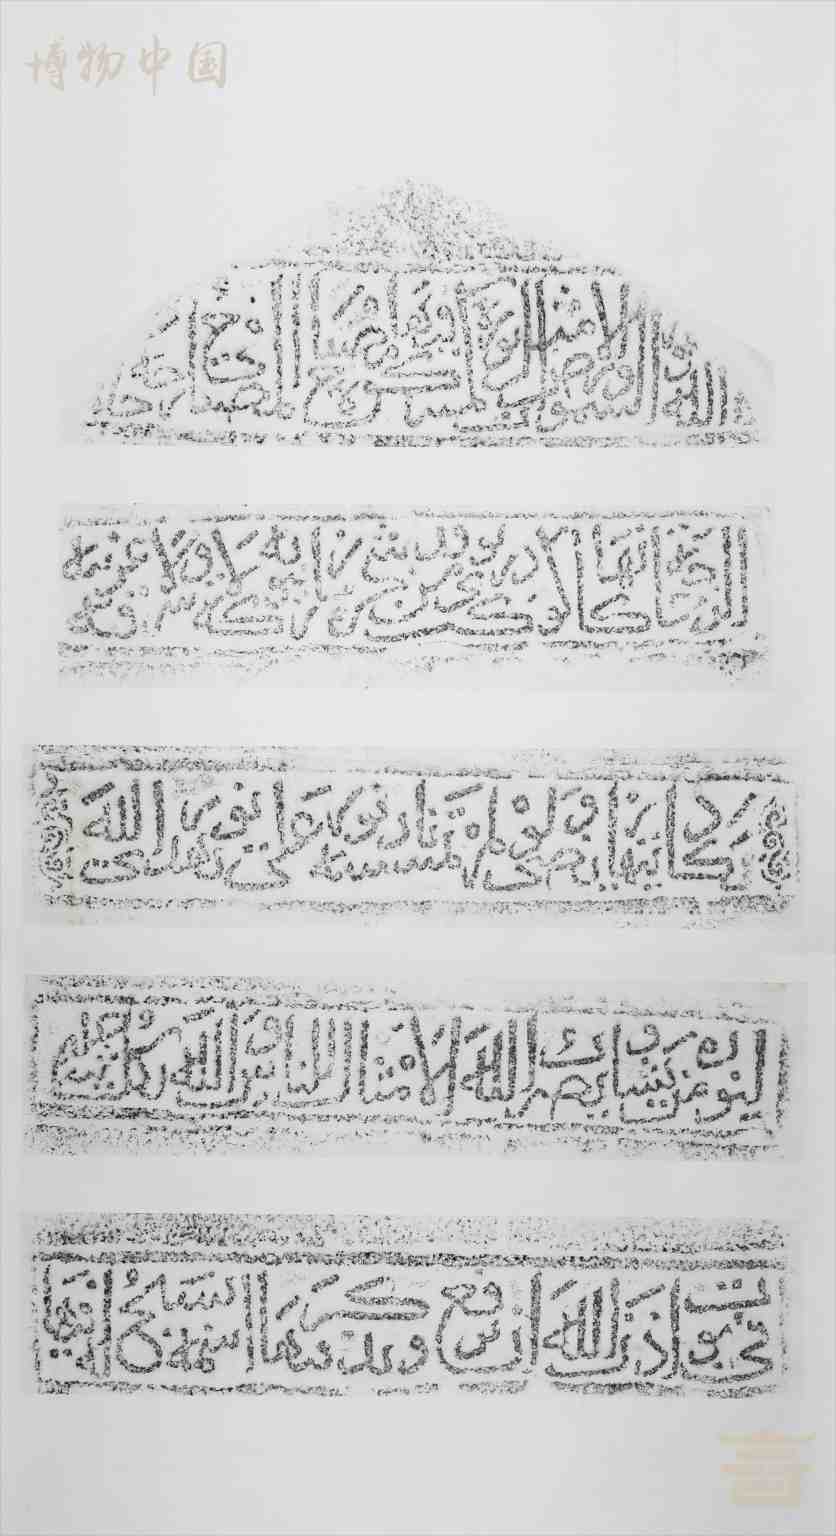 博物中国
الله نور السموات والارض مثل نوره كمشكوة فيها مصباح المصباح في زجاجة
الزجاجة كانها كوكب دري يوقد من شجرة مباركة زيتونة لا شرقية ولا غربية
يكاد زيتها يضيء ولو لم تمسسه نار نور على نور يهدي الله
لنوره من يشاء ويضرب الله الامثال للناس والله بكل شيء عليم
في بيوت اذن الله ان ترفع ويذكر فيها اسمه يسبح له فيها